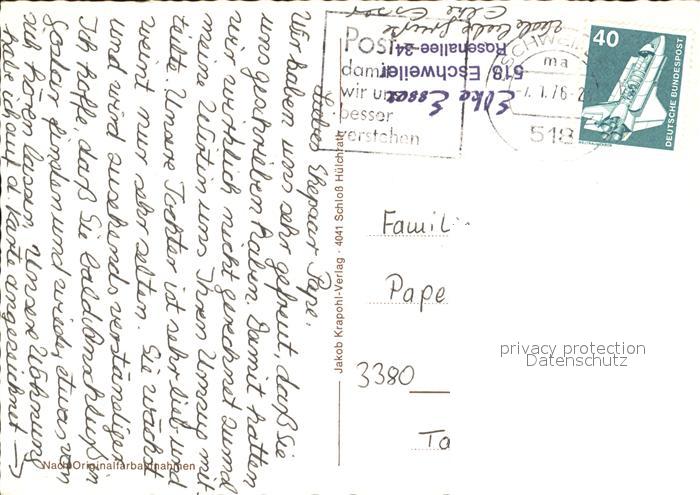 Liebes Ehepaar Pape.
Wir haben uns sehr gefreut, daß Sie
uns geschrieben haben. Damit hatten
wir wirklich nicht gerechnet zumal
meine Wirtin uns Ihren Umzug mit-
teilte. Unsere Tochter ist sehr lieb und
weint nur sehr selten. Sie wächst
und wird zusehends verständiger
Ich hoffe, daß Sie bald Anschluß in
finden und wieder etwas von
sich hören lassen. Unsere Wohnung
habe ich auf d. Karte angezeichnet →
Elke Esser
Elke Esser
518 Eschweiler
Rosenallee 24
Post
damit
wir uns
besser
verstehen
ma
-7.1.76-2
518
40
DEUTSCHE BUNDESPOST
Jakob Krapohl-Verlag · 4041 Schloß Hülchrath
Famili
Pape
3380
Ta
Nach Originalfarbaufnahmen
privacy protection
Datenschutz